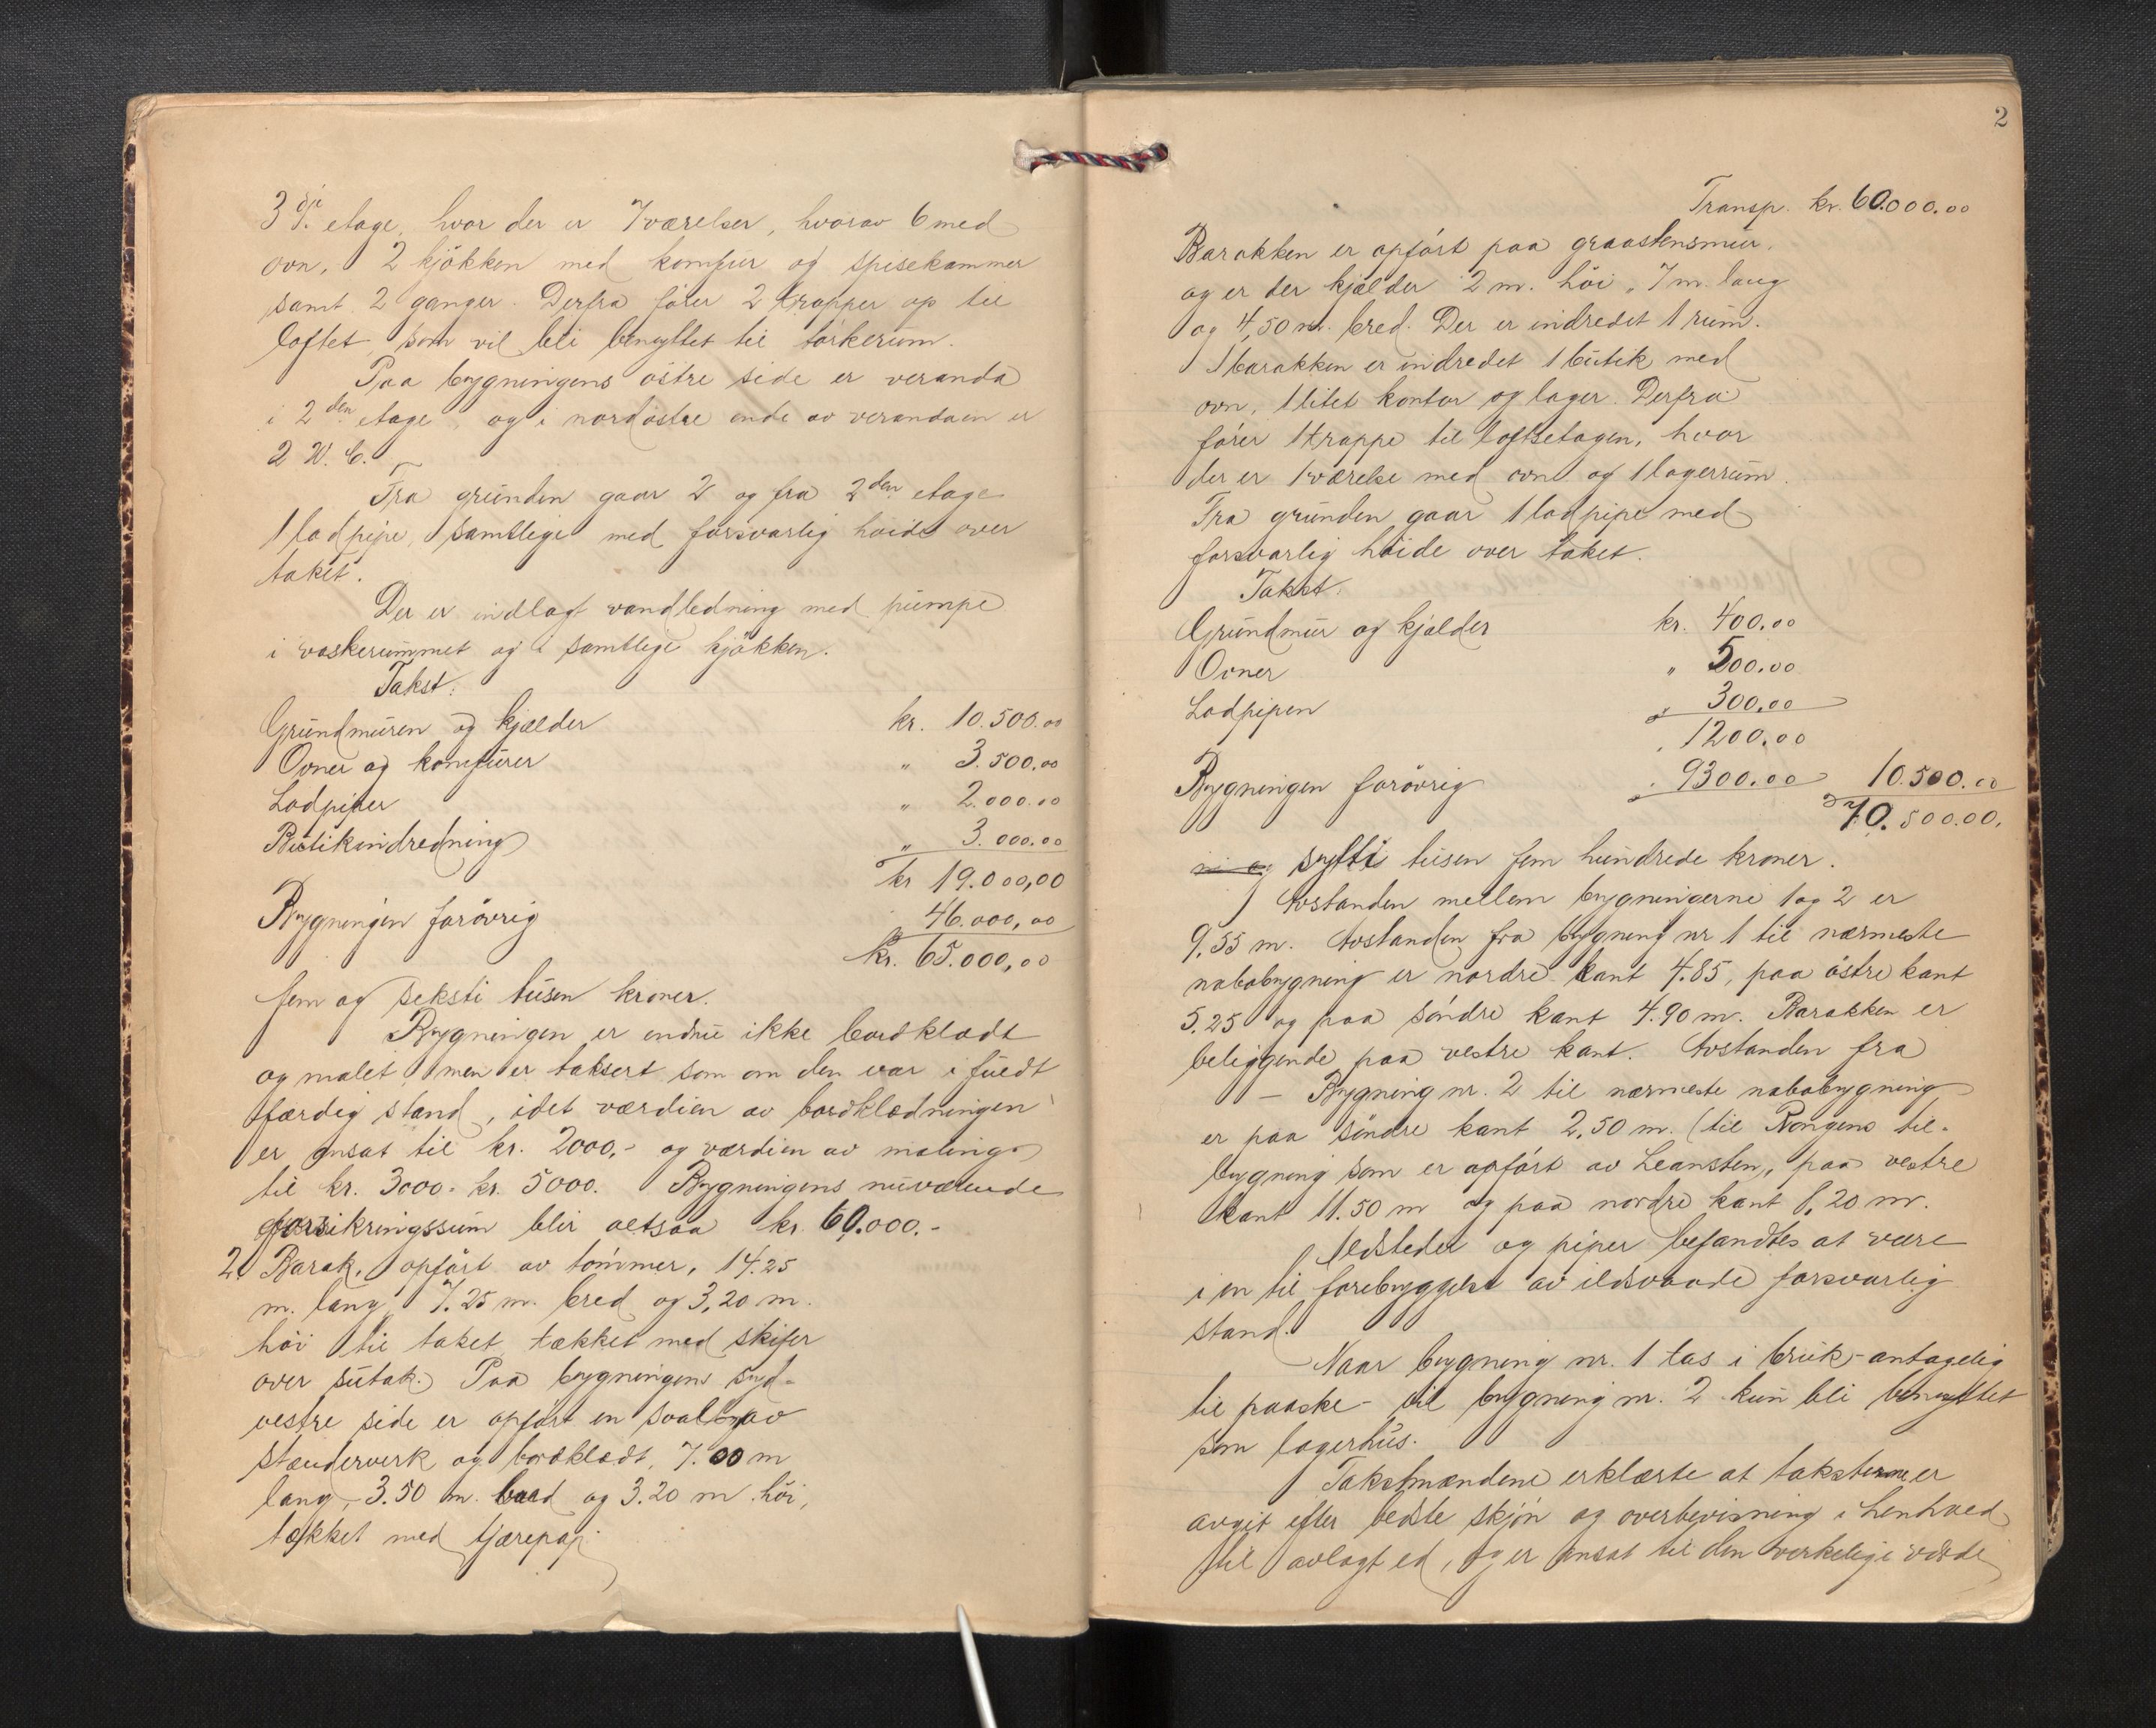 3dje etage, hvor der er 7 værelser, hvorav 6 med
ovn, 2 kjökken med komfur og spisekammer
samt 2 ganger. Derfra förer 2 trapper op til
loftet, som vil bli benyttet til törkerum.
Paa bygningens östre side er veranda
i 2den etage, og i nordöstre ende av verandaen er
2 W. C.
Fra grunden gaar 2 og fra 2den etage
1 lodpipe, samtlige med forsvarlig höide over
taket.
Der er indlagt vandledning med pumpe
i vaskerummet og i samtlige kjökken.
Takst:
Grundmuren og kjælder kr. 10.500.00
Ovner og komfurer " 3.500.00
Lodpiper " 2.000.00
Butikindredning " 3.000.00
kr 19.000,00
Bygningen forövrig " 46.000,00
kr. 65.000,00
fem og seksti tusen kroner.
Bygningen er endnu ikke bordklædt
og malet, men er taksert som om den var i fuldt
færdig stand, idet værdien av bordklædningen
er ansat til kr. 2000,- og værdien av maling
til kr. 3000- kr. 5000. Bygningens nuværende
forsikringssum blir altsaa kr. 60.000.-
2. Barak, opfört av tömmer, 14.25
m. lang, 7.25 m. bred og 3,20 m.
höi til taket, tækket med skifer
over sutak. Paa bygningens syd-
vestre side er opfört en sval av
stenderverk og bordklædt, 7.00 m
lang, 3.50 m. bred og 3.20 m. höi,
tækket med tjærepap.
2
Transp. kr. 60.000.00
Barakken er opfört paa graastensmur,
og er der kjælder 2 m. höi, 7 m. lang
og 4,50 m. bred. Der er indredet 1 rum.
I barakken er indredet 1 butik med
ovn, 1 litet kontor og lager. Derfra
förer 1 trappe til loftsetagen, hvor
der er 1 værelse med ovn og 1 lagerrum.
Fra grunden gaar 1 lodpipe med
forsvarlig höide over taket.
Takst:
Grundmur og kjælder kr. 400.00
Ovner " 500.00
Lodpipen " 300.00
" 1200.00
Bygningen forövrig " 9300.00 10.500.00
70.500.00.
ni og sytti tusen fem hundrede kroner.
Avstanden mellem bygningerne 1 og 2 er
9.55 m. Avstanden fra bygning nr 1 til nærmeste
nabobygning er nordre kant 4.85, paa östre kant
5.25 og paa söndre kant 4.90 m. Barakken er
beliggende paa vestre kant. Avstanden fra
- Bygning nr. 2 til nærmeste nabobygning
er paa söndre kant 2,50 m. (til Rongens til-
bygning som er opfört av Leansten), paa vestre
kant 11.50 m og paa nordre kant 8,20 m.
Ildsteder og piper befandtes at være
i en til forebyggelse av ildsvaade forsvarlig
stand.
Naar bygning nr. 1 tas i bruk - antagelig
til paaske - vil bygning nr. 2 kun bli benyttet
som lagerhus.
Takstmændene erklærte at taksterne er
avgit efter bedste skjön og overbevisning i henhold
til avlagt ed, og er ansat til den verkelige værdi